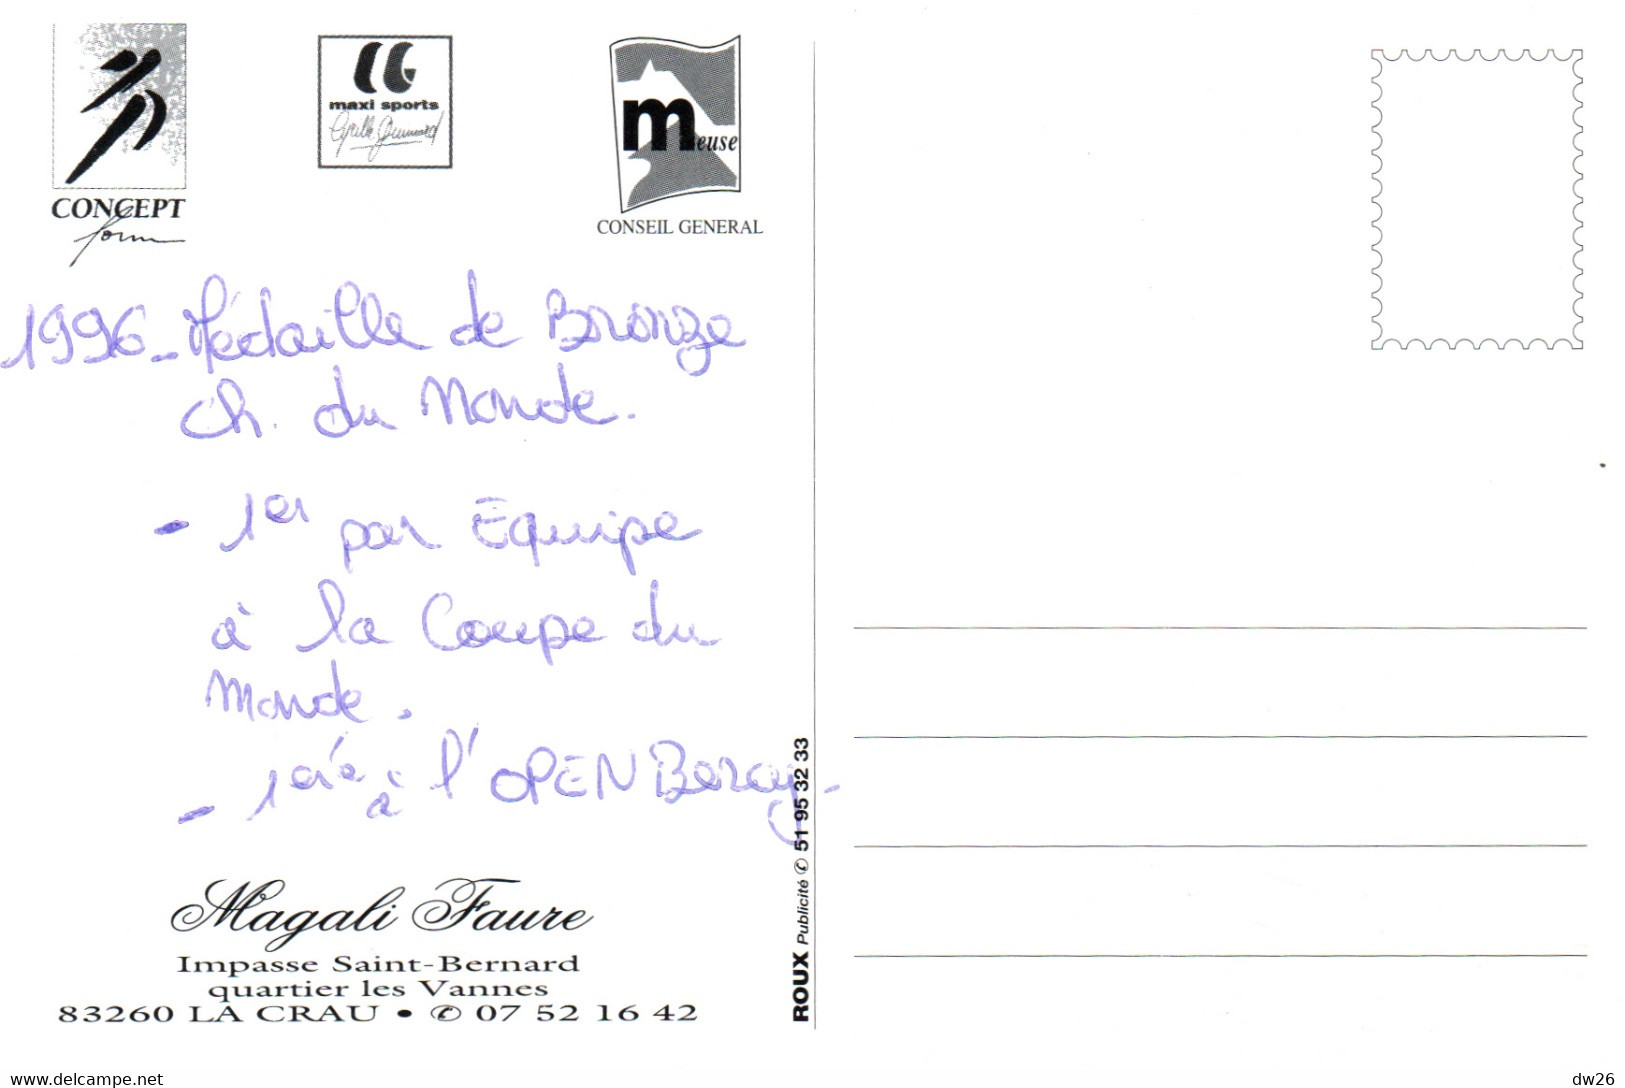 CONCEPT
form
CG
maxi sports
meuse
CONSEIL GENERAL
1996 - Médaille de Bronze
Ch. du Monde.
- 1er par Equipe
à la Coupe du
Monde.
- 1ère à l'OPEN Bercy.
Magali Faure
Impasse Saint-Bernard
quartier les Vannes
83260 LA CRAU • ✆ 07 52 16 42
ROUX Publicité ✆ 51 95 32 33
delcampe.net
dw26